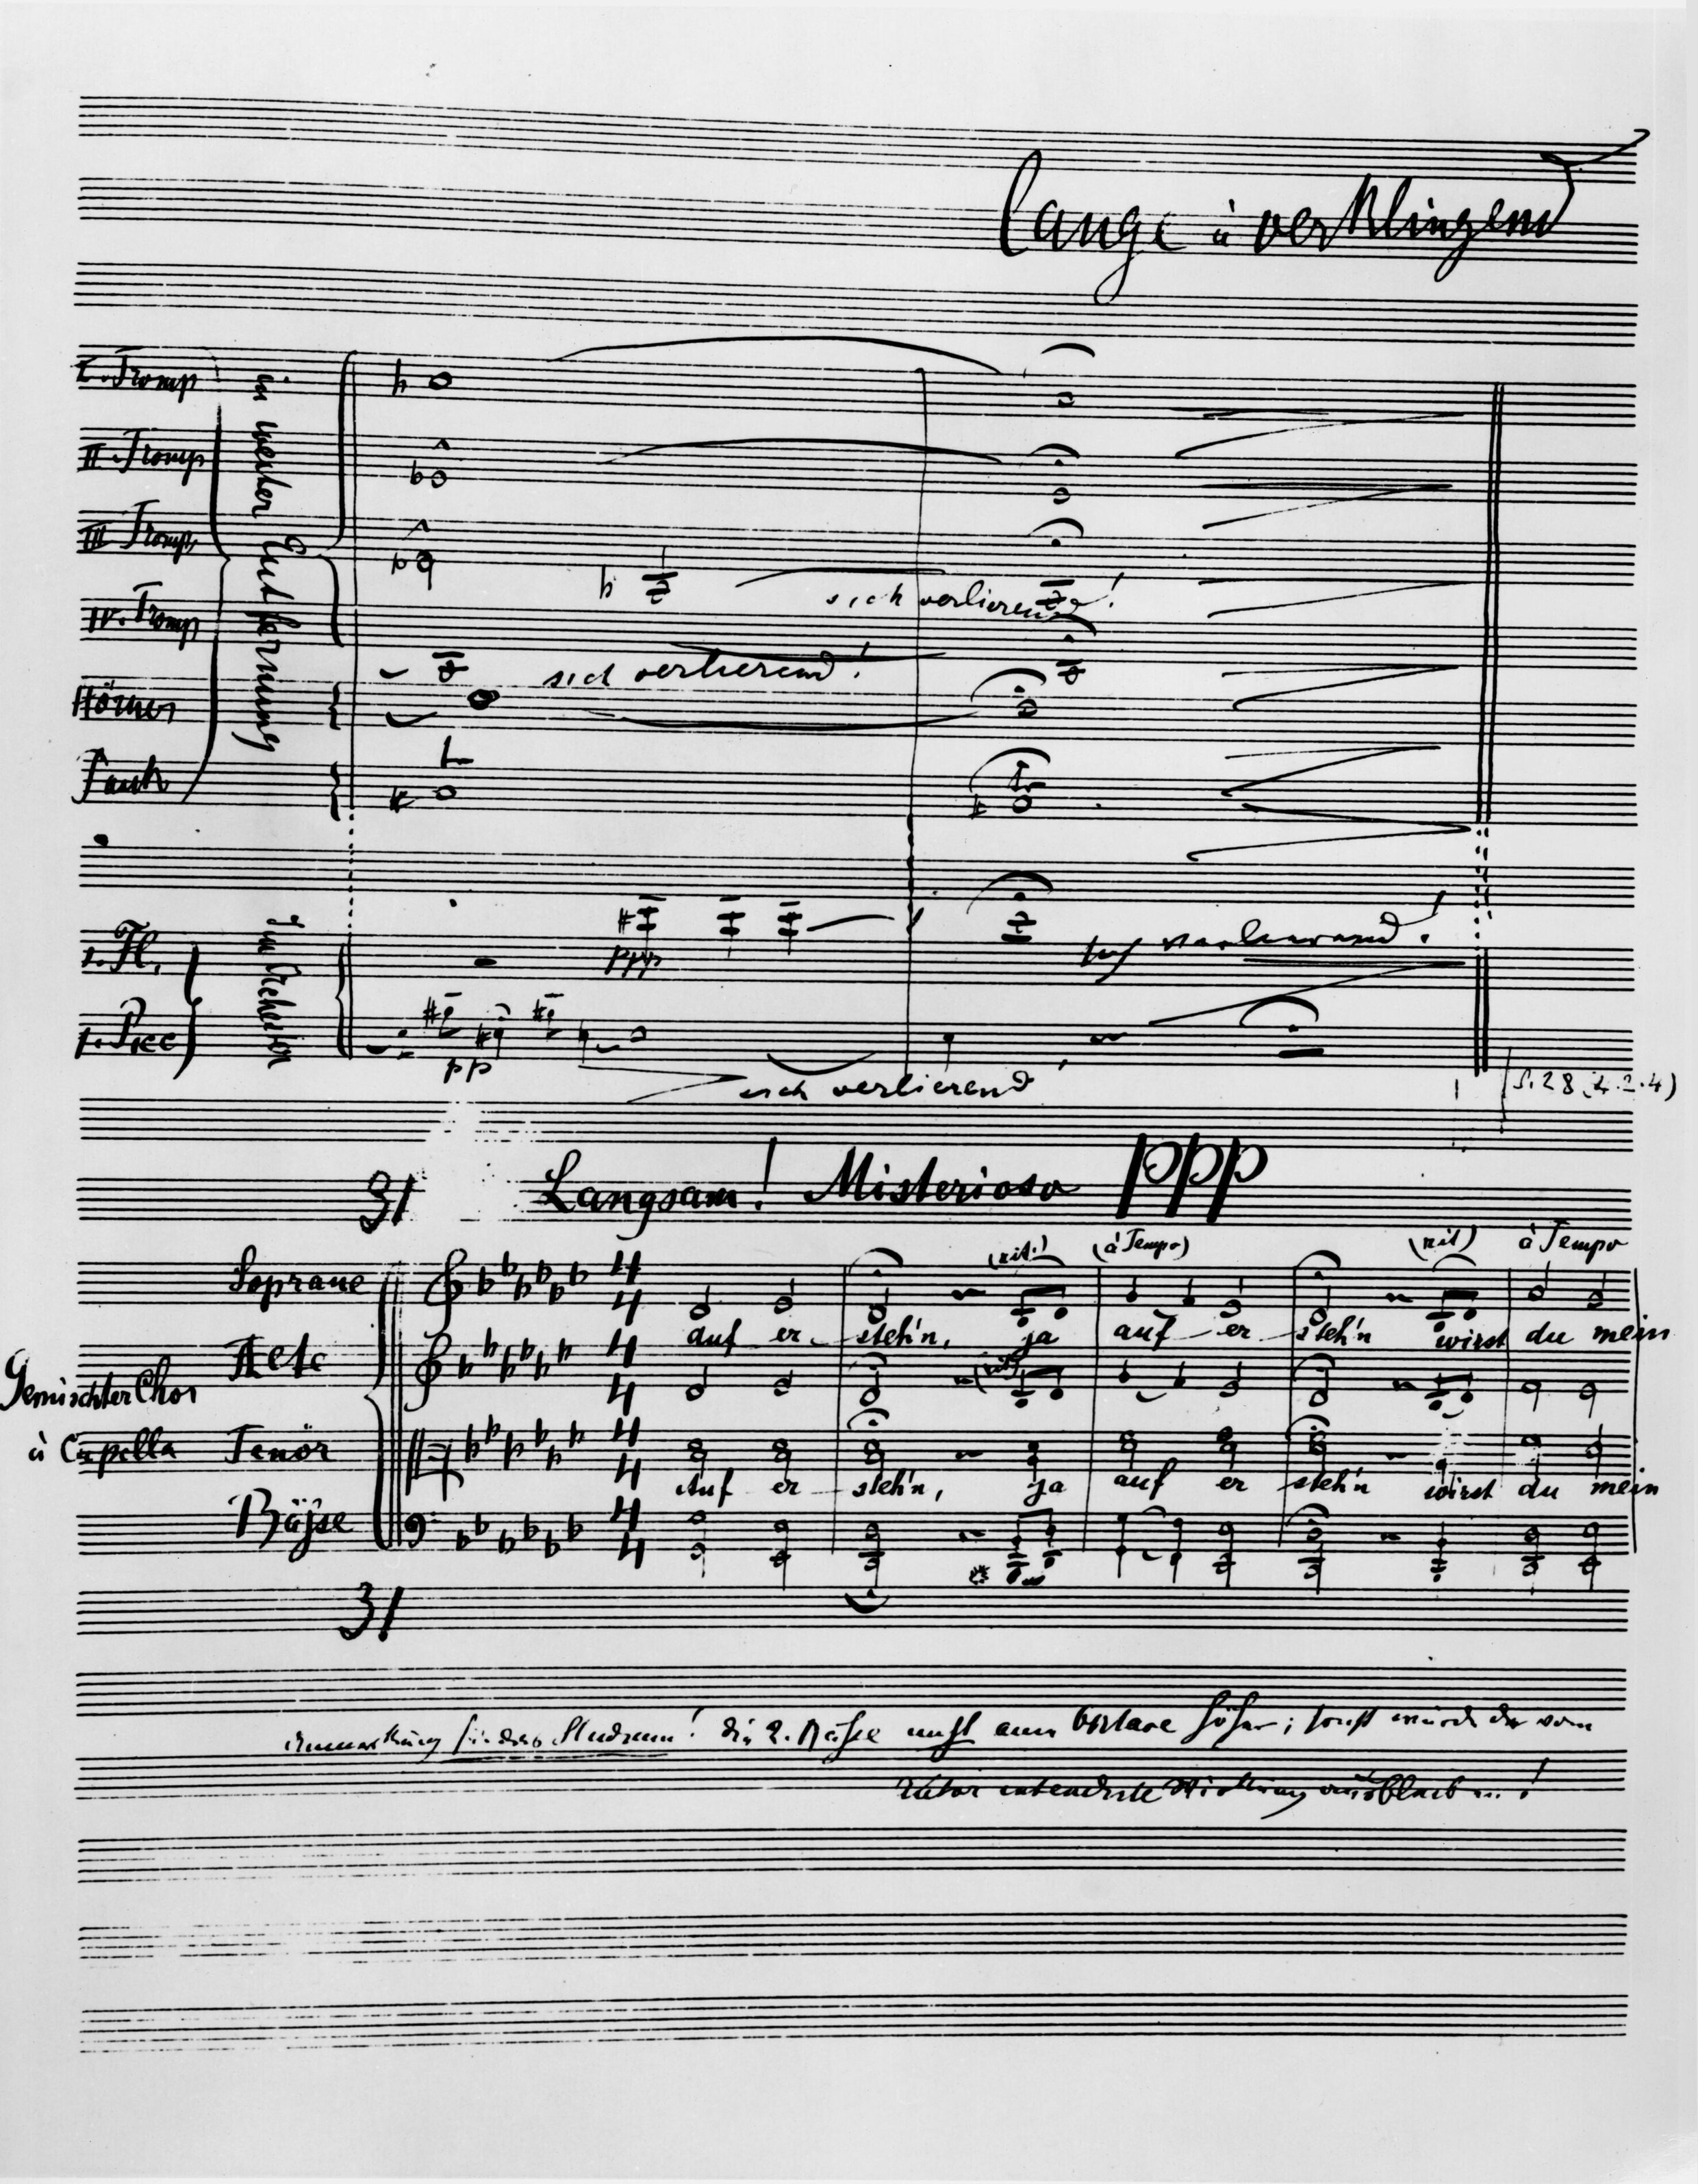 Lange u verklingend
I. Tromp
II. Tromp
III Tromp
IV. Tromp
Hörner
Pauk
in weiter Entfernung
sich verlierend!
sich verlierend!
1. Fl.
1. Picc
Im Orchester
ppp
sich verlierend!
pp
sich verlierend
31 Langsam! Misterioso ppp
(rit.) (à Tempo) (rit) à Tempo
Soprane
4 4
auf er - steh'n, ja auf - er - steh'n wirst du mein
Alte
4 4
(rit)
Gemischter Chor
à Capella
Tenör
4 4
Auf er - steh'n, ja auf er steh'n wirst du mein
Bäße
4 4
31
Anmerkung für das Studium! Die 2. Bäße nicht eine Octave höher; sonst würde die vom
Autor intendirte Wirkung ausbleib...!